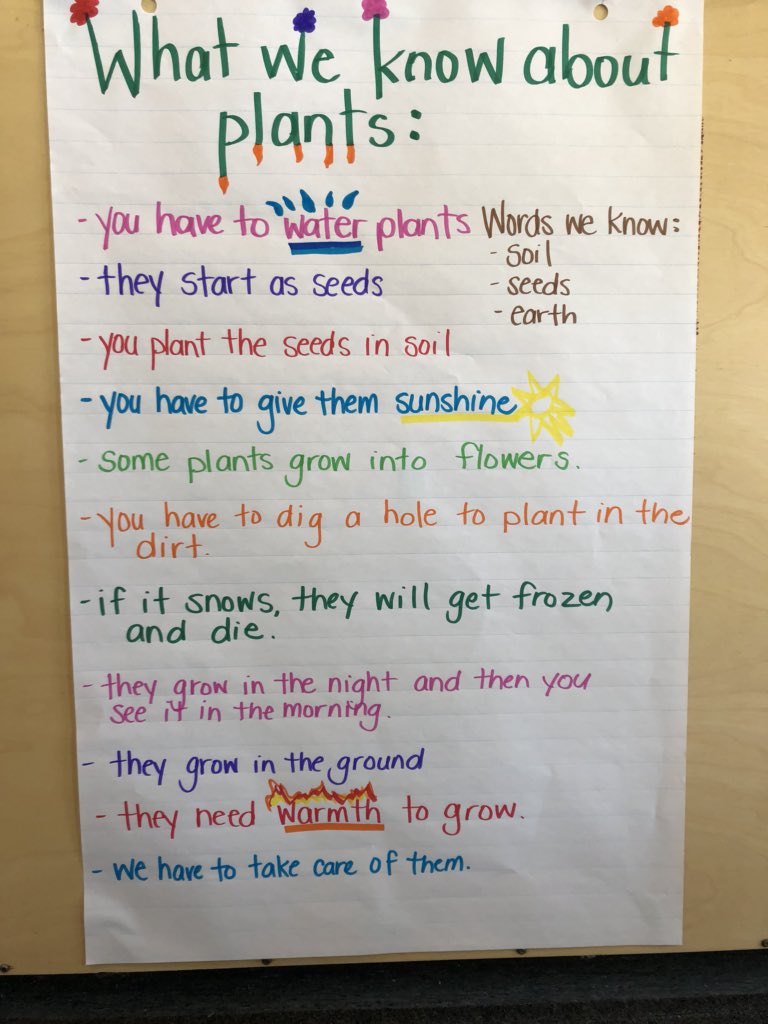 What we know about
plants:
- you have to water plants
Words we know:
- soil
- seeds
- earth
- they start as seeds
- you plant the seeds in soil
- you have to give them sunshine
- some plants grow into flowers.
- you have to dig a hole to plant in the
dirt.
- if it snows, they will get frozen
and die.
- they grow in the night and then you
see it in the morning.
- they grow in the ground
- they need warmth to grow.
- we have to take care of them.